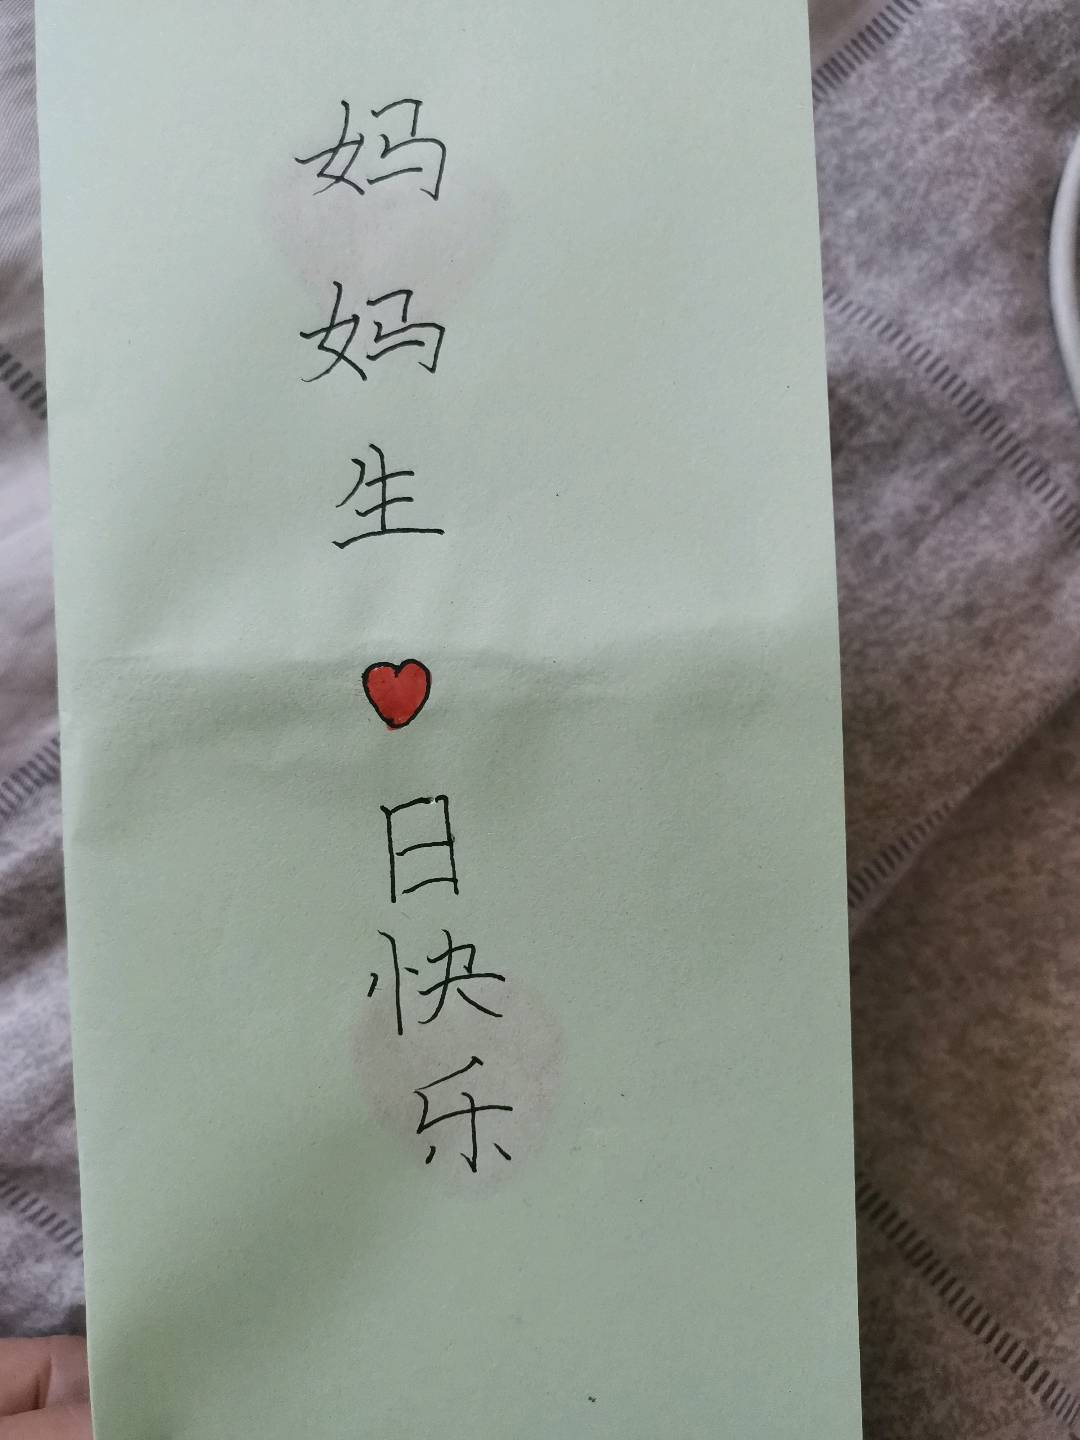 妈妈生日快乐